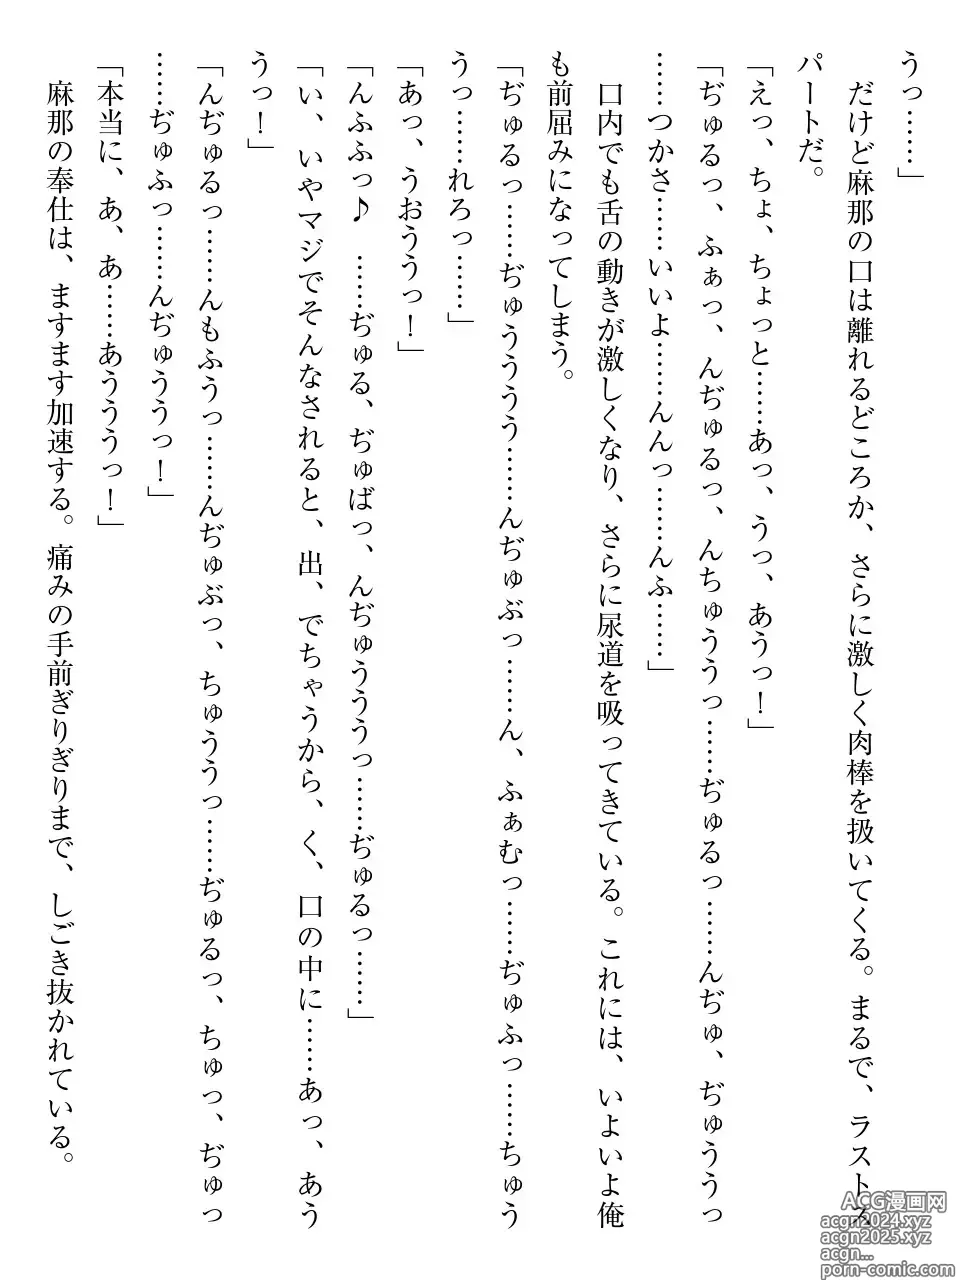 うっ……」
　だけど麻那の口は離れるどころか、さらに激しく肉棒を扱いてくる。まるで、ラストス
パートだ。
「えっ、ちょ、ちょっと……あっ、うっ、あうっ！」
「ぢゅるっ、ふぁっ、んぢゅるっ、んちゅううっ……ぢゅるっ……んぢゅ、ぢゅううっ
……つかさ……いいよ……んんっ……んふ……」
　口内でも舌の動きが激しくなり、さらに尿道を吸ってきている。これには、いよいよ俺
も前屈みになってしまう。
「ぢゅるっ……ぢゅうううう……んぢゅぶっ……ん、ふぁむっ……ぢゅふっ……ちゅう
うっ……れろっ……」
「あっ、うおううっ！」
「んふふっ♪　……ぢゅる、ぢゅばっ、んぢゅうううっ……ぢゅるっ……」
「い、いやマジでそんなされると、出、でちゃうから、く、口の中に……あっ、あう
うっ！」
「んぢゅるっ……んもふうっ……んぢゅぶっ、ちゅううっ……ぢゅるっ、ちゅっ、ぢゅっ
……ぢゅふっ……んぢゅううっ！」
「本当に、あ、あ……あうううっ！」
　麻那の奉仕は、ますます加速する。痛みの手前ぎりぎりまで、しごき抜かれている。
ACG漫画网
acgn2024.xyz
acgn2025.xyz
acgn...
porn-comic.com